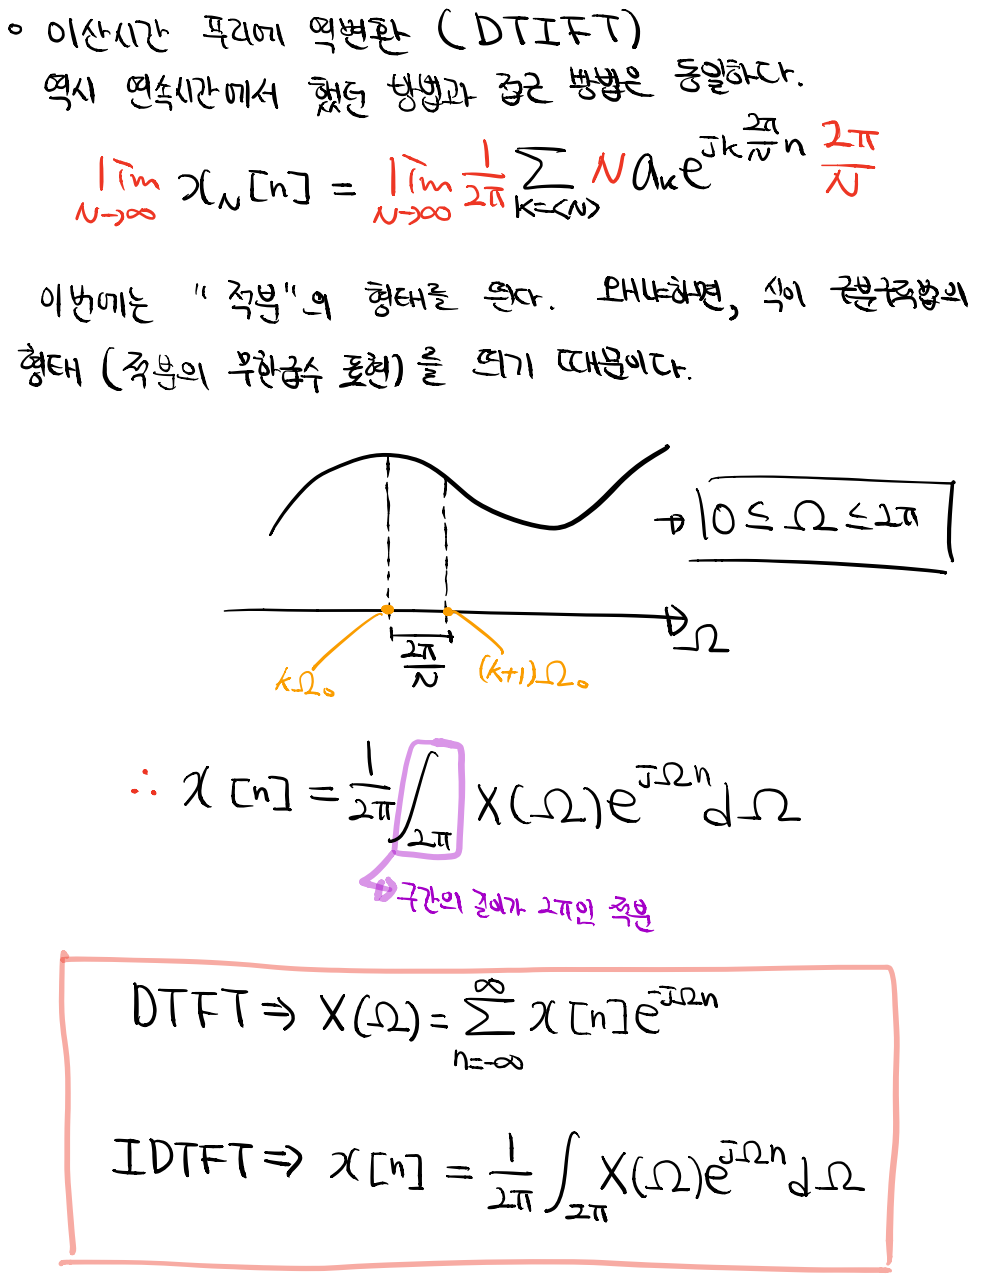 ◦ 이산시간 푸리에 역변환 (DTIFT)
역시 연속시간에서 했던 방법과 접근 방법은 동일하다.
lim_{N→∞} x_N[n] = lim_{N→∞} 1/2π Σ_{k=<N>} N a_k e^{jk 2π/N n} 2π/N
이번에는 "적분"의 형태를 띈다. 왜냐하면, 식이 구분구적법의
형태 (적분의 무한급수 표현)를 띄기 때문이다.
→ 0 ≤ Ω ≤ 2π
Ω
2π/N
kΩ₀
(k+1)Ω₀
∴ x[n] = 1/2π ∫_{2π} X(Ω)e^{jΩn}dΩ
→ 구간의 길이가 2π인 적분
DTFT ⇒ X(Ω) = Σ_{n=-∞}^{∞} x[n]e^{-jΩn}
IDTFT ⇒ x[n] = 1/2π ∫_{2π} X(Ω)e^{jΩn}dΩ